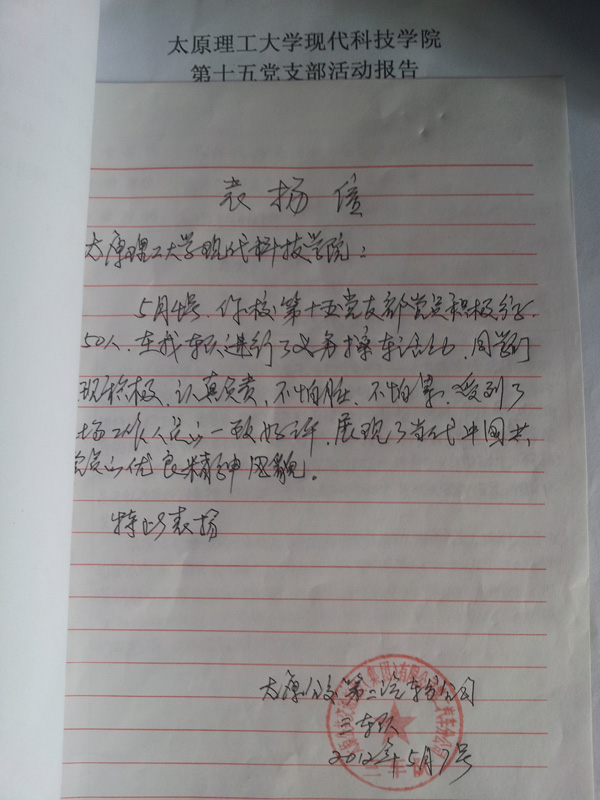 太原理工大学现代科技学院
第十五党支部活动报告
表扬信
太原理工大学现代科技学院：
5月4号，你校第十五党支部党员积极分子
50人，在我车队进行了义务擦车活动，同学们
现积极，认真负责，不怕脏、不怕累，受到了
场工作人员的一致好评，展现了当代中国共
党员的优良精神风貌。
特此表扬
太原公交第二汽车分公司
车队
2012年5月7号